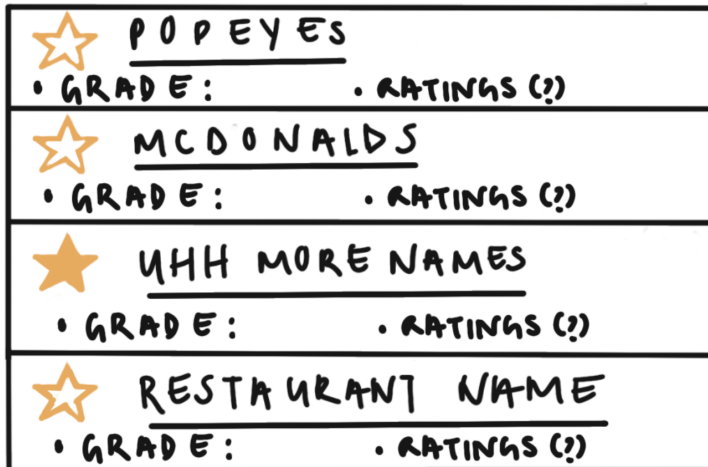 POPEYES
• GRADE: • RATINGS (?)
MCDONALDS
• GRADE: • RATINGS (?)
UHH MORE NAMES
• GRADE: • RATINGS (?)
RESTAURANT NAME
• GRADE: • RATINGS (?)